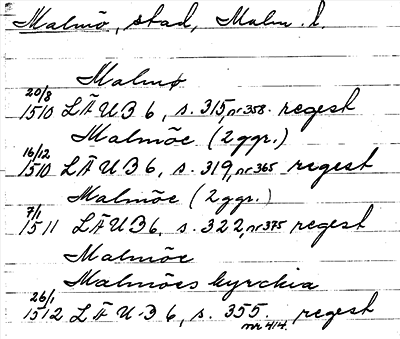 Malmö, stad, Malm. l.
Malmø
20/8
1510 LÄUB 6, s. 315, nr 358. regest
Malmöe (2 ggr.)
16/12
1510 LÄUB 6, s. 319, nr 365 regest
Malmöe (2 ggr.)
7/1
1511 LÄUB 6, s. 322, nr 375 regest
Malmöe
Malmöes kyrckia
26/1
1512 LÄUB 6, s. 355. regest
nr 414.